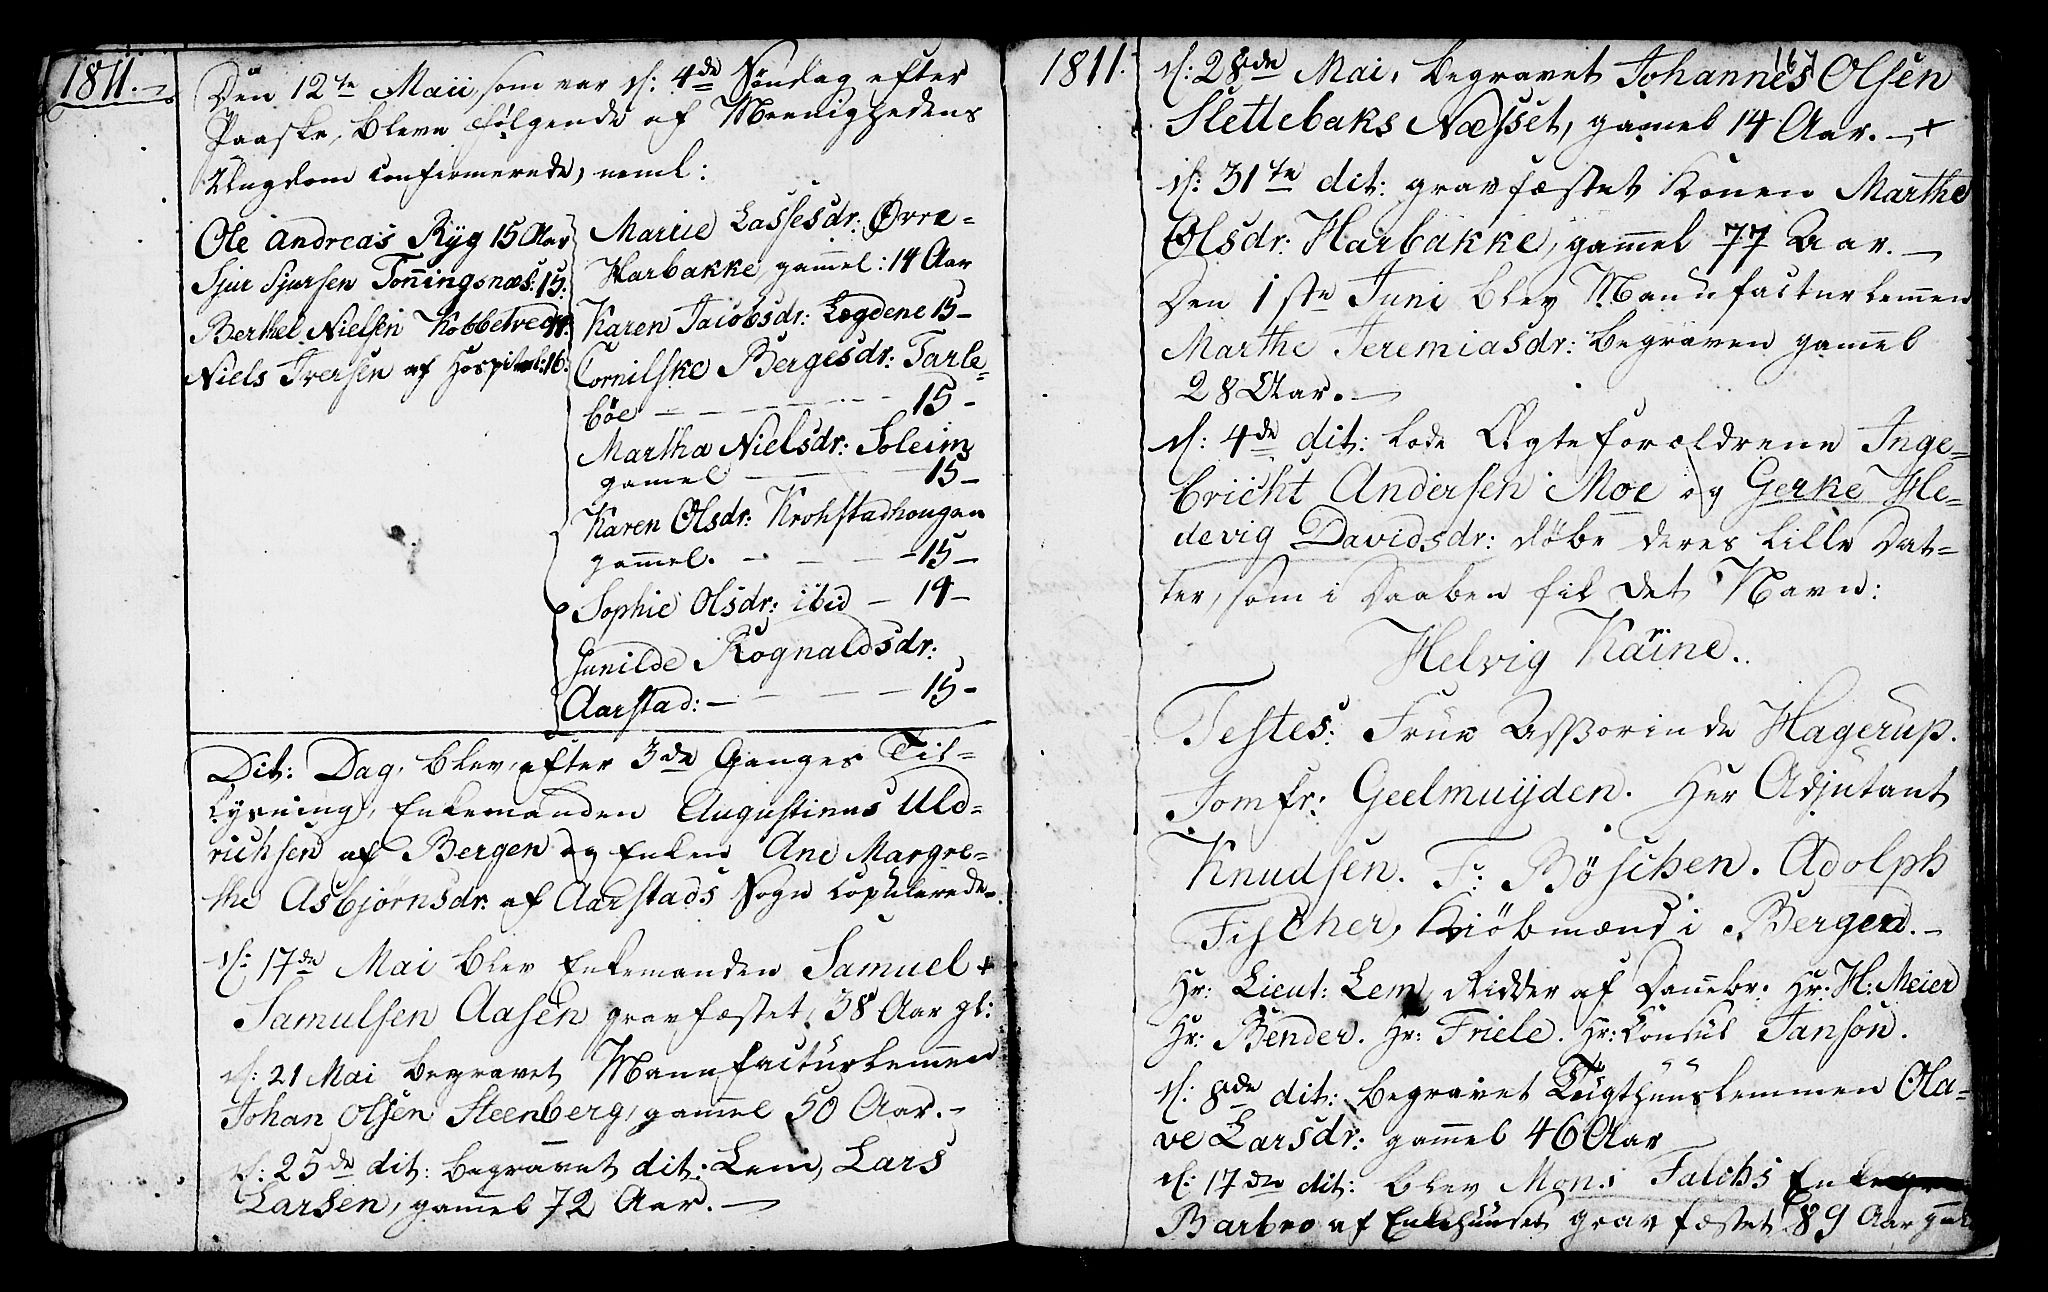 1811.
Den 12te Maii, som var d: 4de Søndag efter
Paaske, bleve følgende af Meenighedens
Ungdom Confirmerede, neml:
Ole Andreas Ryg 15 Aar
Sjur Sjursen Tonningsnæs: 15.
Berthel Nielsen Kobbetvedt
Niels Iversen af Hospital: 16.
Mariie Lassesdr: Øvre-
Harbakke, gamel: 14 Aar
Karen Jacobsdr: Lægdene 15 -
Cornilske Bergesdr: Tarle-
böe - - - - - - 15 -
Martha Nielsdr: Soleim
gamel - - - 15 -
Karen Olsdr: Krohstadhougen
gammel. - - - 15 -
Sophie Olsdr: ibid - 14 -
Gunilde Rognaldsdr:
Aarstad: - - - - 15 -
Dit: Dag, blev efter 3de Ganges Til-
lysning, Enkemanden Augustinus Uld-
richsen af Bergen og Enken Ane Margre-
the Asbjørnsdr. af Aarstads Sogn Copulerede.
d: 17de Mai blev Enkemanden Samuel +
Samulsen Aasen gravfæstet, 38 Aar gl:
d: 21 Mai begravet Manufacturlemmen
Johan Olsen Steenberg, gammel 50 Aar. -
d: 25de dit: begravet dit: Lem, Lars
Larsen, gamel 72 Aar. -
1811.
167
d: 28de Mai, begravet Johannes Olsen
Slettebaks Næsset, gamel 14 Aar. - +
d: 31te dit: gravfæstet Konen Marthe
Olsdr: Harbakke, gammel 77 Aar. -
Den 1ste Juni blev Manufacturlemmen
Marthe Jeremiasdr: begraven gamel
28 Aar. -
d: 4de dit: lode Ægteforældrene Inge-
bricht Andersen Moe og Gerke He-
devig Davidsdr: döbe deres lille Dat-
ter, som i Daaben fik det Navn:
Helvig Kaine.
Testes: Frue Assorinde Hagerup.
Jomfr: Geelmuijden. Her Adjutant
Knudsen. F: Böschen. Adolph
Fischer, Kiöbmænd i Bergen. -
Hr: Lieut: Lem, Ridder af Dannebr. Hr: H: Meier
Hr: Bender. Hr: Friele. Hr: Consul Janson.
d: 8de dit: begravet Tugthuuslemmen Ola-
ve Larsdr: gammel 46 Aar
d: 17de dit: blev Mon: Falchs Enke
Barbro af Enkehuuset gravfæstet 89 Aar gml